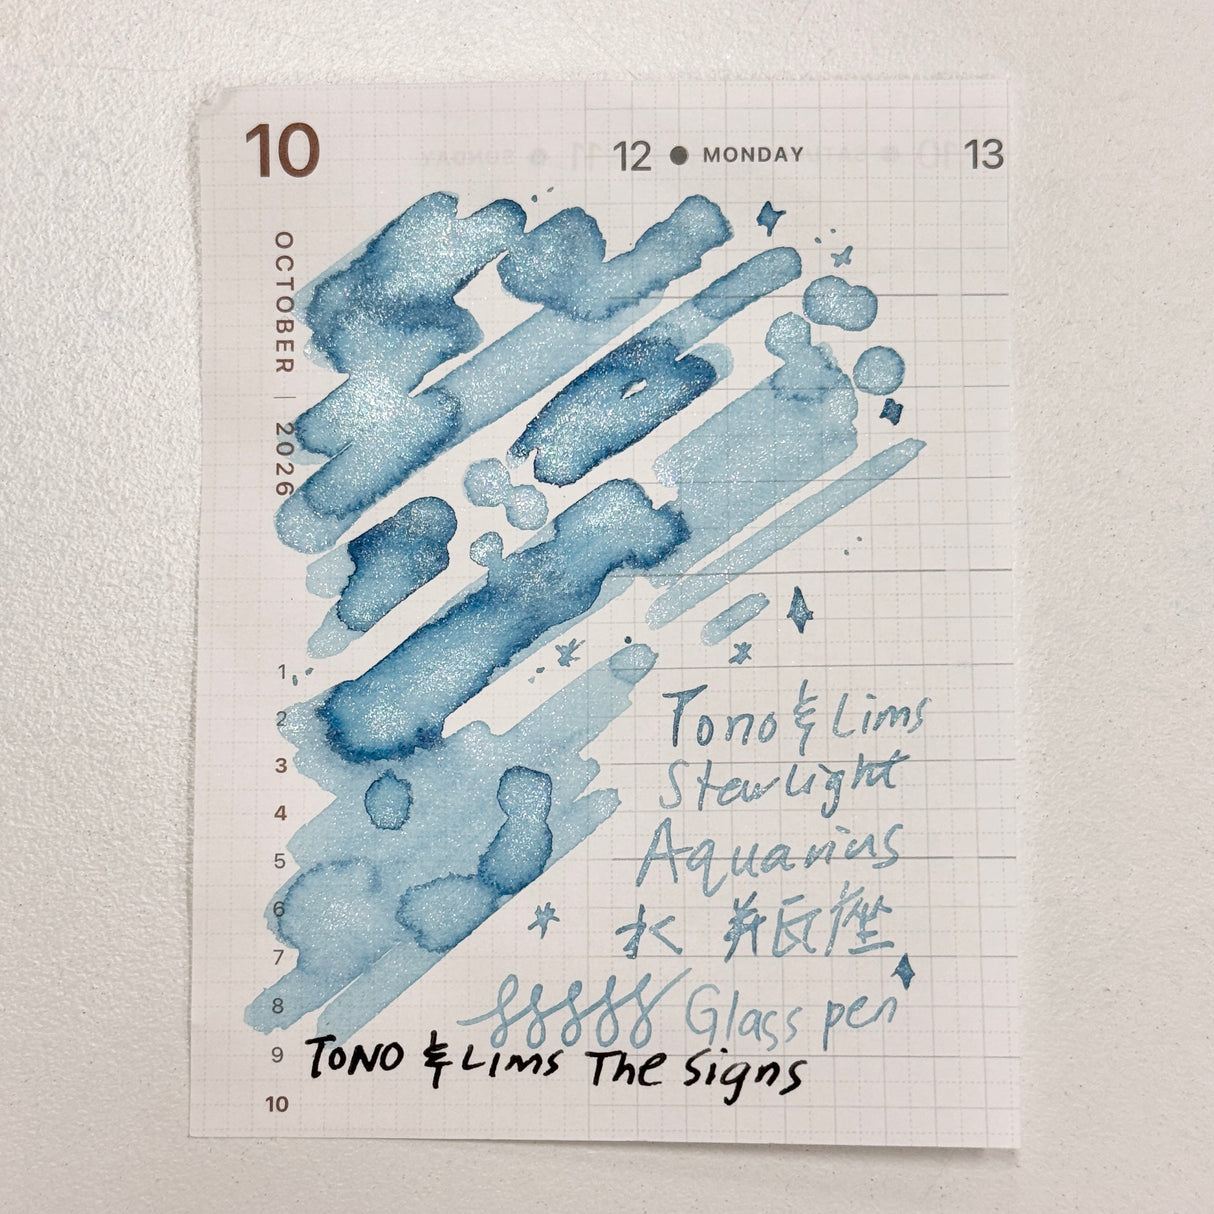 10
12 ● MONDAY
13
OCTOBER | 2026
1
2
3
4
5
6
7
8
9
10
Tono & Lims
Starlight
Aquarius
水瓶座
Glass pen
TONO & LIMS The Signs